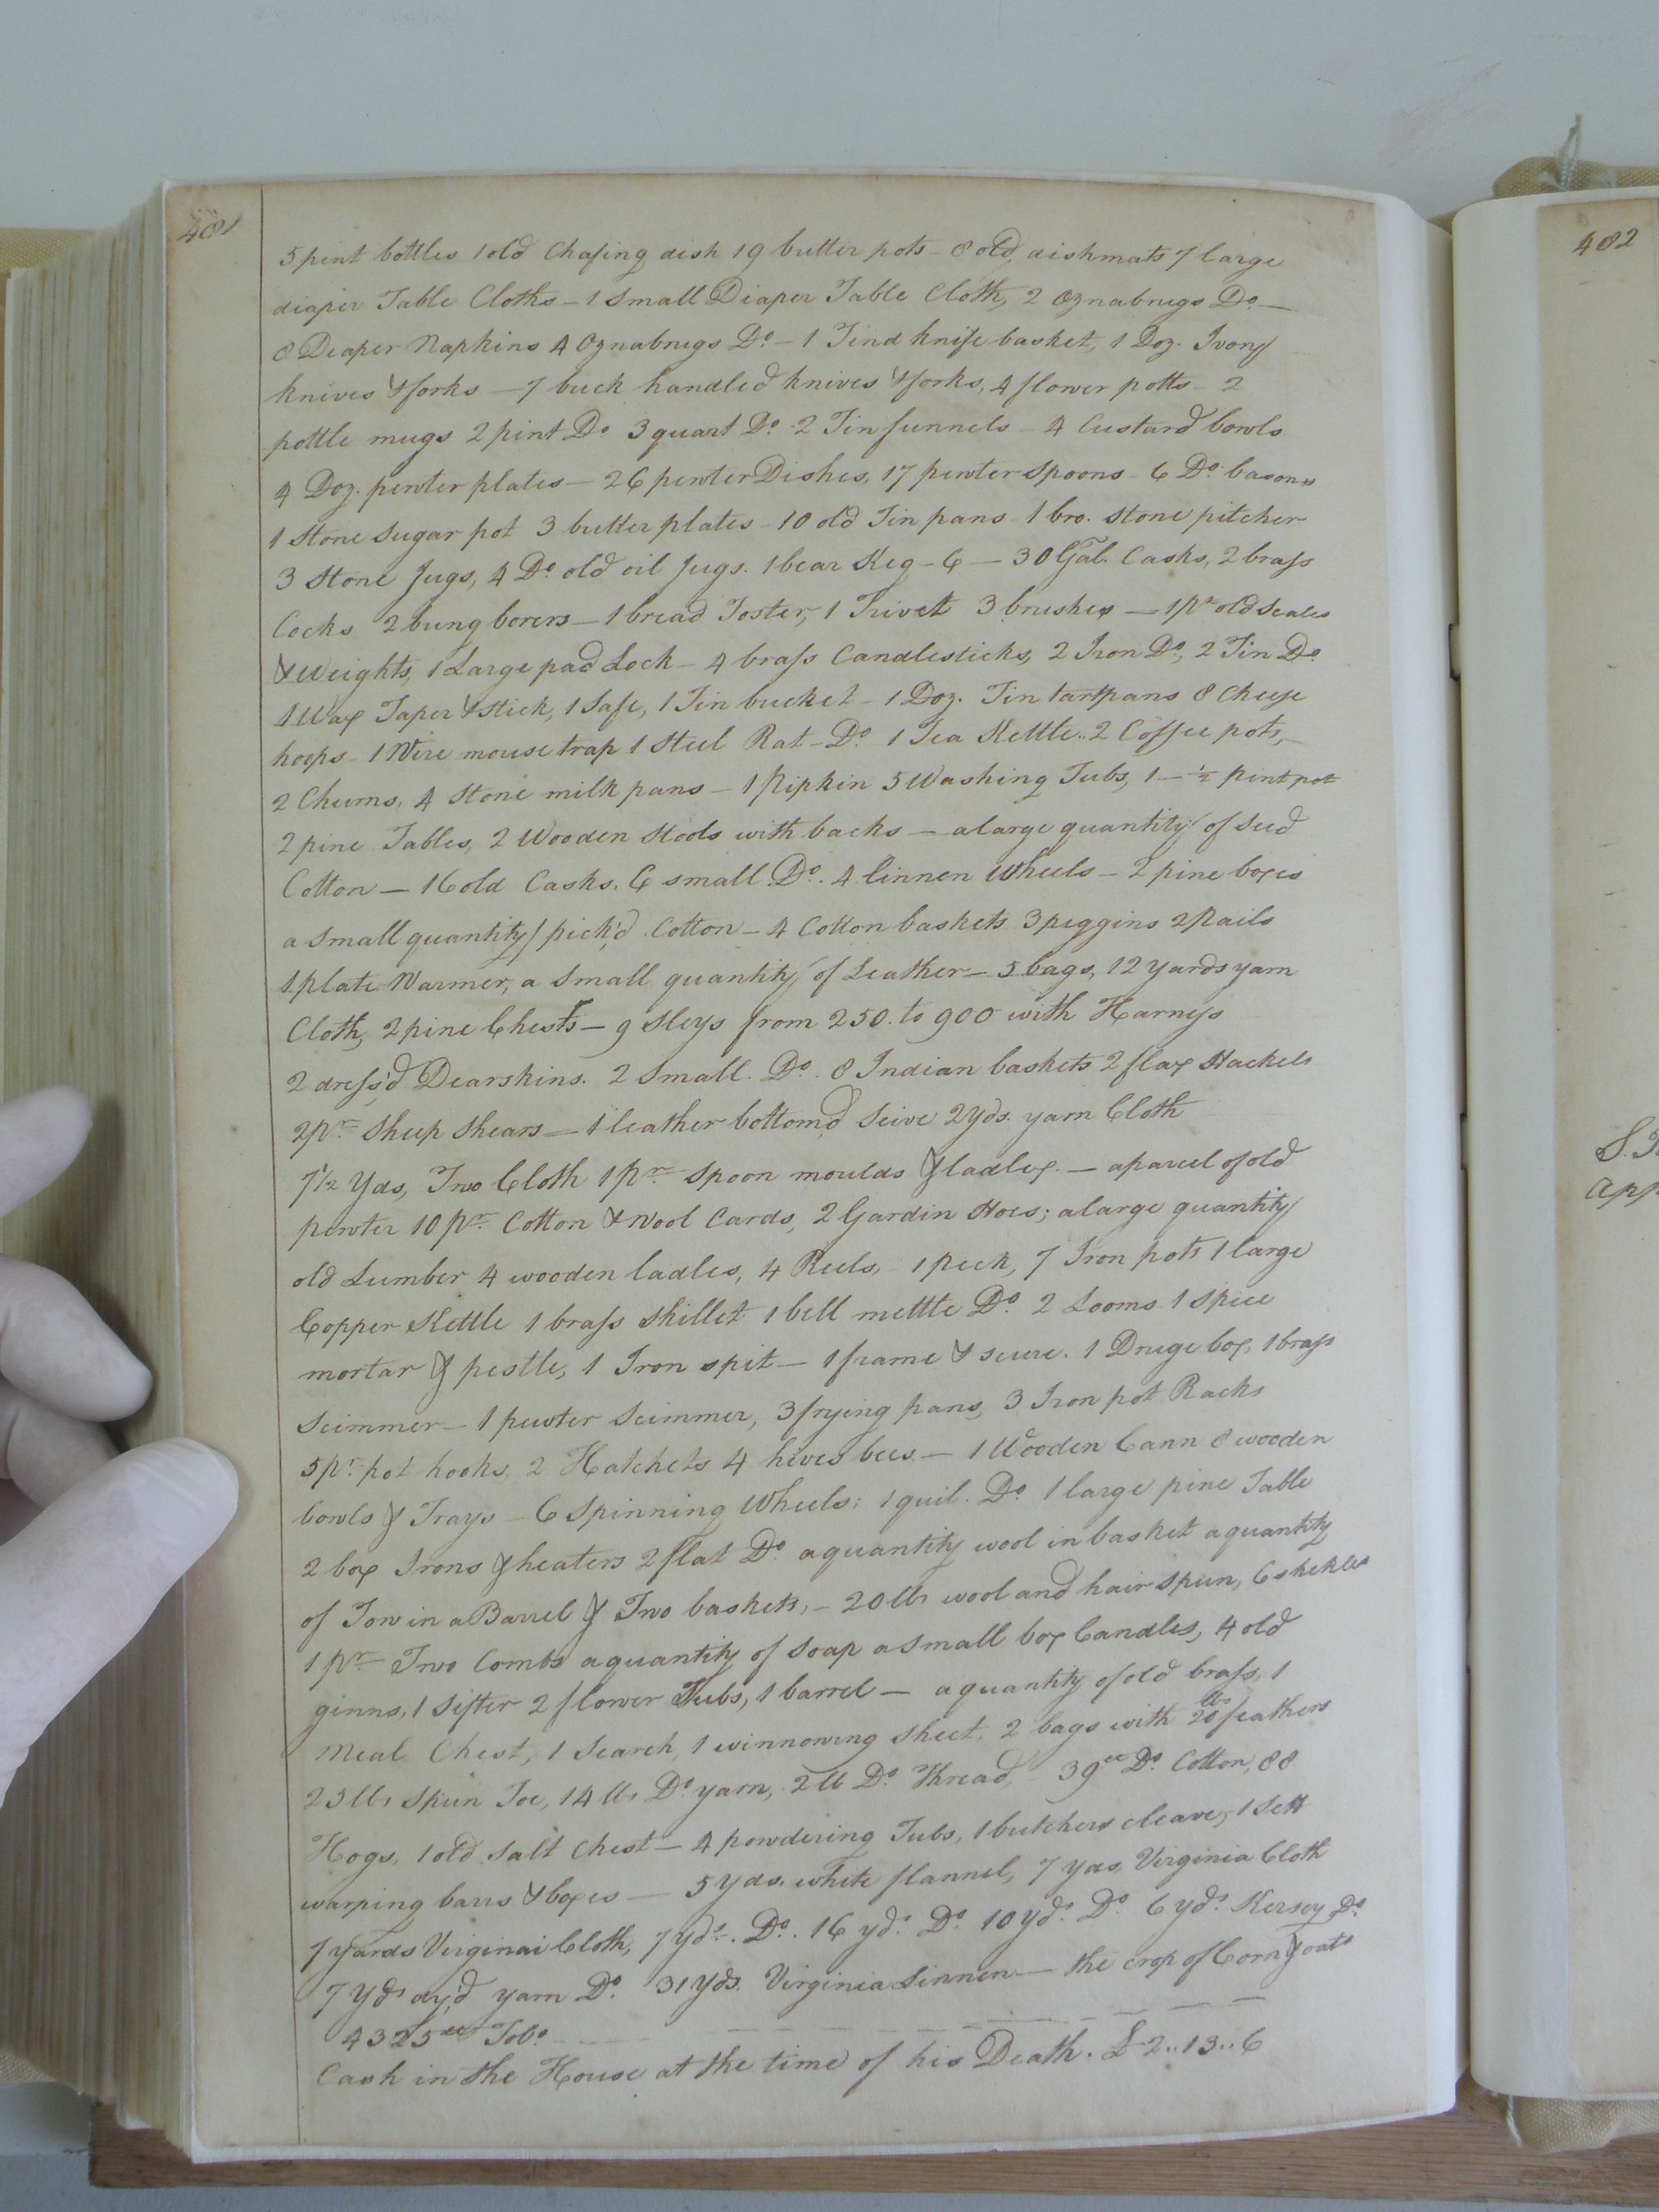 481
5 pint bottles 1 old Chafing dish 19 butter pots - 8 old dishmats 7 large
diaper Table Cloths - 1 Small Diaper Table Cloth, 2 Oznabrugs Do. -
8 Deaper Napkins 4 Oznabrugs Do. - 1 Tind knife basket, 1 Doz. Ivory
knives & forks - 7 buck handled knives & forks, 4 flower potts - 2
pottle mugs 2 pint Do 3 quart Do. 2 Tin funnels - 4 Custard bowls
4 Doz. pewter plates - 26 pewter Dishes, 17 pewter spoons - 6 Do. basons
1 Stone Sugar pot 3 butter plates - 10 old Tin pans - 1 bro. stone pitcher
3 Stone Jugs, 4 Do. old oil Jugs. 1 bear Keg - 6 - 30 Gal. Casks, 2 brass
Cocks 2 bung borers - 1 bread Toster, 1 Trivet 3 brushes - 1 pr old Scales
& Weights, 1 Large pad Lock - 4 brass Candlesticks, 2 Iron Do., 2 Tin Do.
1 Wax Taper & stick, 1 Safe, 1 Tin bucket - 1 Doz. Tin tartpans 8 Cheese
hoops - 1 Wire mouse trap 1 Steel Rat - Do. 1 Tea Kettle.. 2 Coffee pots, -
2 Churns, 4 Stone milk pans - 1 Pipkin 5 Washing Tubs, 1 - ½ pint pot
2 pine Tables, 2 Wooden Stools with backs - a large quantity of Seed
Cotton - 16 old Casks. 6 small Do. 4 linnen Wheels - 2 pine boxes
a small quantity pick'd Cotton - 4 Cotton baskets 3 piggins 2 Pails
1 plate Warmer, a Small quantity of Leather - 5 bags, 12 yards yarn
Cloth, 2 pine Chests - 9 Sleys from 250. to 900 with Harness
2 dress'd Dearskins. 2 Small. Do. 8 Indian baskets 2 flax Hackels
2 pr. Sheep Shears - 1 leather bottom'd Seive 2 yds. yarn Cloth
7 1/2 Yds, Tow Cloth 1 pr. Spoon moulds & ladles. - a parcel of old
pewter 10 pr. Cotton & wool Cards, 2 Gardin Hoes; a large quantity
old Lumber 4 wooden ladles, 4 Reels, - 1 Peck, 7 Iron pots 1 large
Copper Kettle 1 brass Skillet 1 bell mettle Do. 2 Looms 1 Spice
mortar & pestle, 1 Iron spit - 1 frame & scure. 1 Druge box, 1 brass
Scimmer - 1 pewter Scimmer, 3 frying pans, 3 Iron pot Racks
5 pr. pot hooks, 2 Hatchets 4 hives bees - 1 Wooden Cann 8 wooden
bowls & Trays - 6 Spinning Wheels; 1 quil. Do. 1 large pine Table
2 box Irons & heaters 2 flat Do. a quantity wool in basket a quantity
of Tow in a Barrel & Two baskets, - 20 lbs wool and hair Spun, 6
1 pr. Tow Combs a quantity of Soap a small box Candles, 4 old
ginns, 1 Sifter 2 flower Tubs, 1 barrel - a quantity of old brass, 1
Meal Chest, 1 Search, 1 winnowing Sheet. 2 bags with 20 lbs feathers
23 lbs Spun Toe, 14 lbs Do yarn, 2 lb Do. Thread, 39 Do. Cotton, 88
Hogs, 1 old Salt Chest - 4 powdering Tubs, 1 butchers cleaver, 1 Sett
warping barrs & boxes - 5 yds. white flannel, 7 yds, Virginia Cloth
7 yards Virginai Cloth, 7 yds. Do. 16 yds. Do. 10 yds. Do. 6 yds. Kersey Do.
7 yds dy'd yarn Do. 31 yds. Virginia Linnen - the crop of Corn & oats
4325 Tobo.
Cash in the House at the time of his Death. £ 2..13..6
482
app